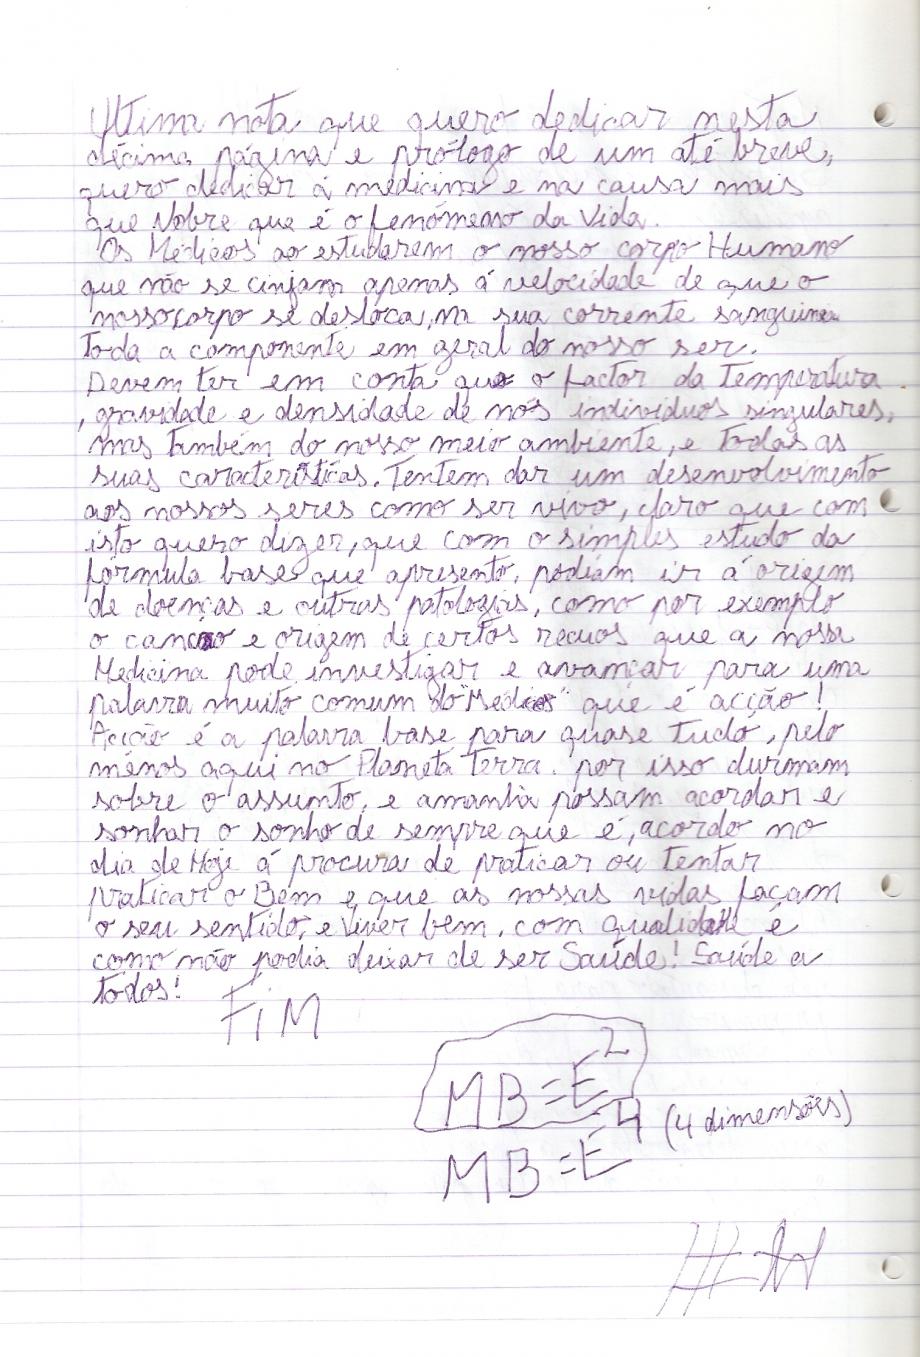 Ultima nota que quero dedicar nesta
décima página e prólogo de um até breve,
quero dedicar á medicina e na causa mais
que Nobre que é o fenómeno da Vida.
Os Médicos ao estudarem o nosso corpo Humano
que não se cinjam apenas á velocidade de que o
nosso corpo se desloca, na sua corrente sanguinea
toda a componente em geral do nosso ser.
Devem ter em conta que o factor da Temperatura
, gravidade e densidade de nós individuos singulares,
mas também do nosso meio ambiente, e todas as
suas caracteristicas. Tentem dar um desenvolvimento
aos nossos seres como ser vivo, claro que com
isto quero dizer, que com o simples estudo da
fórmula base que apresento, podiam ir á origem
de doenças e outras patologias, como por exemplo
o cancro e origem de certos recuos que a nossa
Medicina pode investigar e avançar para uma
palavra muito comum do "Médicos" que é acção!
Acção é a palavra base para quase tudo, pelo
ménos aqui no Planeta Terra. por isso durmam
sobre o assunto, e amanhã possam acordar e
sonhar o sonho de sempre que é, acordo no
dia de Hoje á procura de praticar ou tentar
praticar o Bem e que as nossas vidas façam
o seu sentido, e Viver bem, com qualidade é
como não podia deixar de ser Saúde! Saúde a
todos!
FiM
MB=E²
MB=E⁴ (4 dimensões)